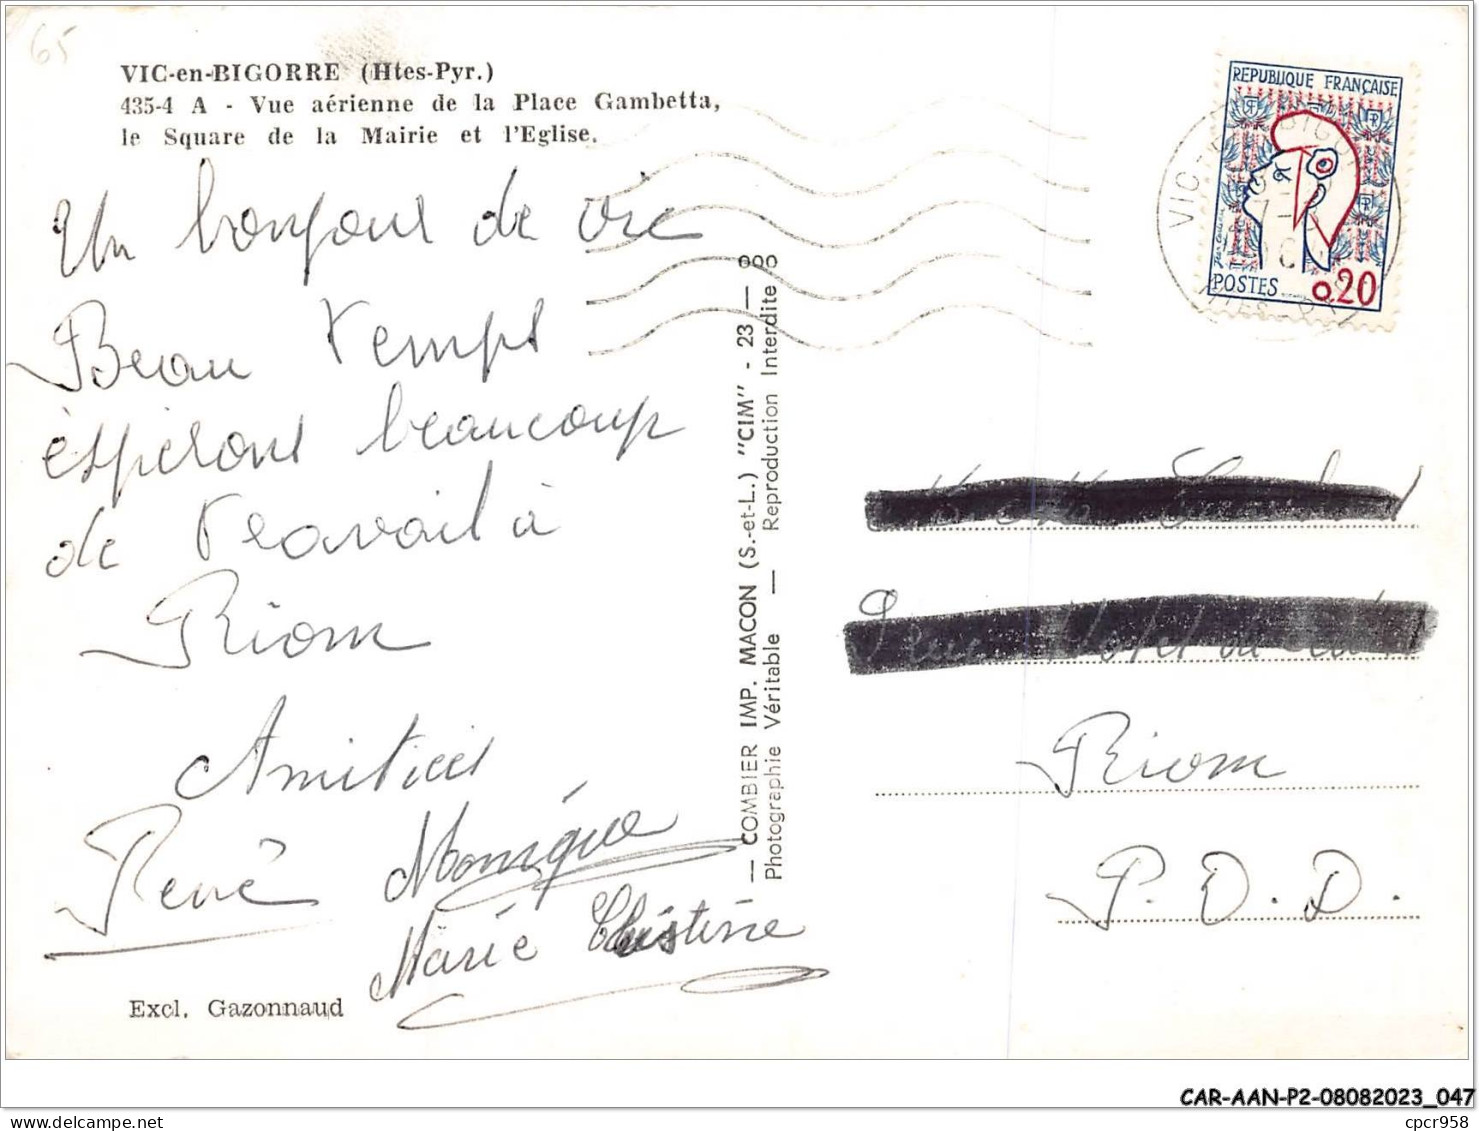 65
VIC-en-BIGORRE (Htes-Pyr.)
435-4 A - Vue aérienne de la Place Gambetta,
le Square de la Mairie et l'Eglise.
Un bonjour de Vic
Beau temps
espérons beaucoup
de travail à
Riom
Amitiés
René Monique
Marie Christine
Excl. Gazonnaud
— COMBIER IMP. MACON (S.-et-L.) "CIM" - 23 — ooo
Photographie Véritable — Reproduction Interdite
REPUBLIQUE FRANÇAISE
POSTES 0,20
VIC
Riom
P. D. D.
CAR-AAN-P2-08082023_047
cpcr958